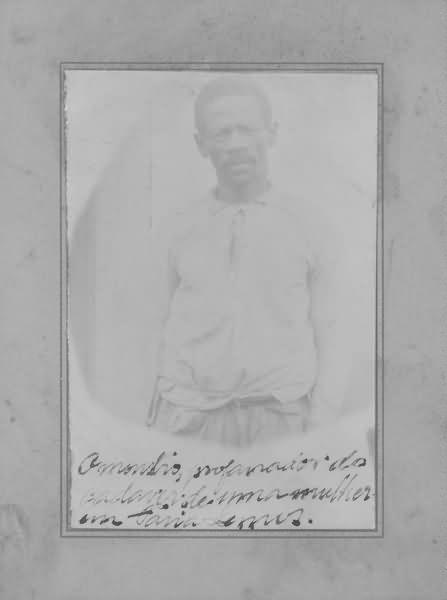 O monstro, profanador do
cadaver de uma mulher
em Faria Lemos.